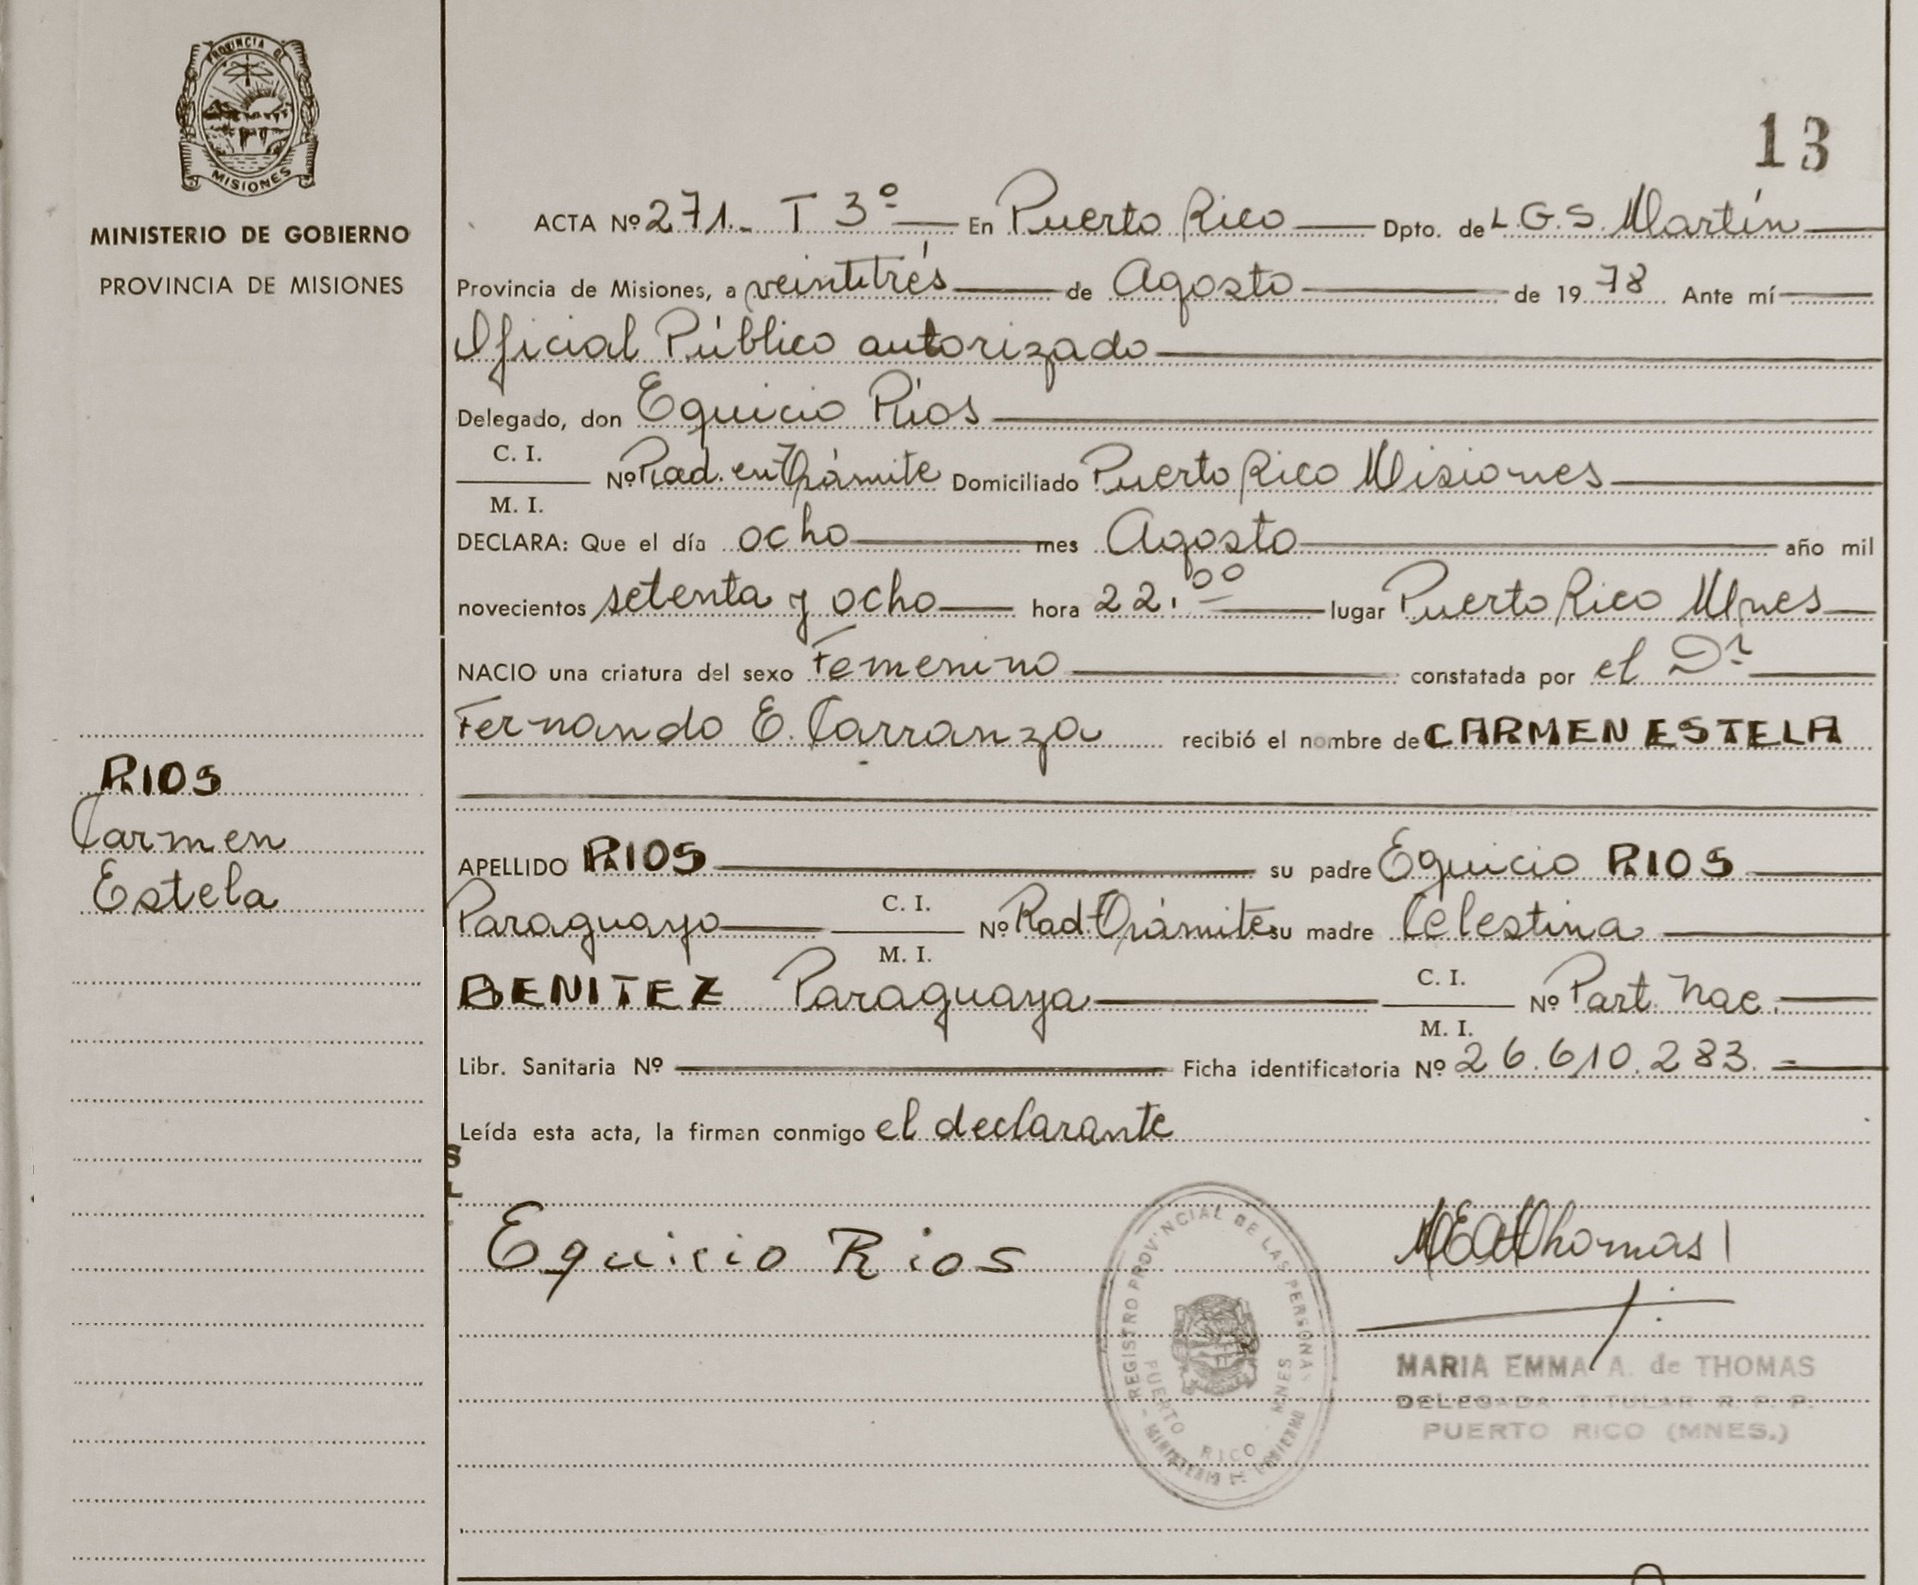 PROVINCIA DE
MISIONES
MINISTERIO DE GOBIERNO
PROVINCIA DE MISIONES
RIOS
Carmen
Estela
13
ACTA Nº 271. T 3º En Puerto Rico Dpto. de L G. S. Martín
Provincia de Misiones, a veintitrés de Agosto de 1978 Ante mí
Oficial Público autorizado
Delegado, don Equicio Ríos
C. I.
Nº Rad. en Trámite Domiciliado Puerto Rico Misiones
M. I.
DECLARA: Que el día ocho mes Agosto año mil
novecientos setenta y ocho hora 22.00 lugar Puerto Rico Mnes
NACIO una criatura del sexo Femenino constatada por el Dr
Fernando E. Carranza recibió el nombre de CARMEN ESTELA
APELLIDO RIOS su padre Equicio RIOS
Paraguayo C. I. Nº Rad Trámite su madre Celestina
M. I.
BENITEZ Paraguaya C. I. Nº Part. Nac.
M. I.
Libr. Sanitaria Nº Ficha identificatoria Nº 26.610.283.=
Leída esta acta, la firman conmigo el declarante
S
L
Equicio Rios
MEAThomas
REGISTRO PROVINCIAL DE LAS PERSONAS
PUERTO RICO - MNES
MINISTERIO DE GOBIERNO
MARIA EMMA A. de THOMAS
DELEGADA TITULAR R. P. P.
PUERTO RICO (MNES.)